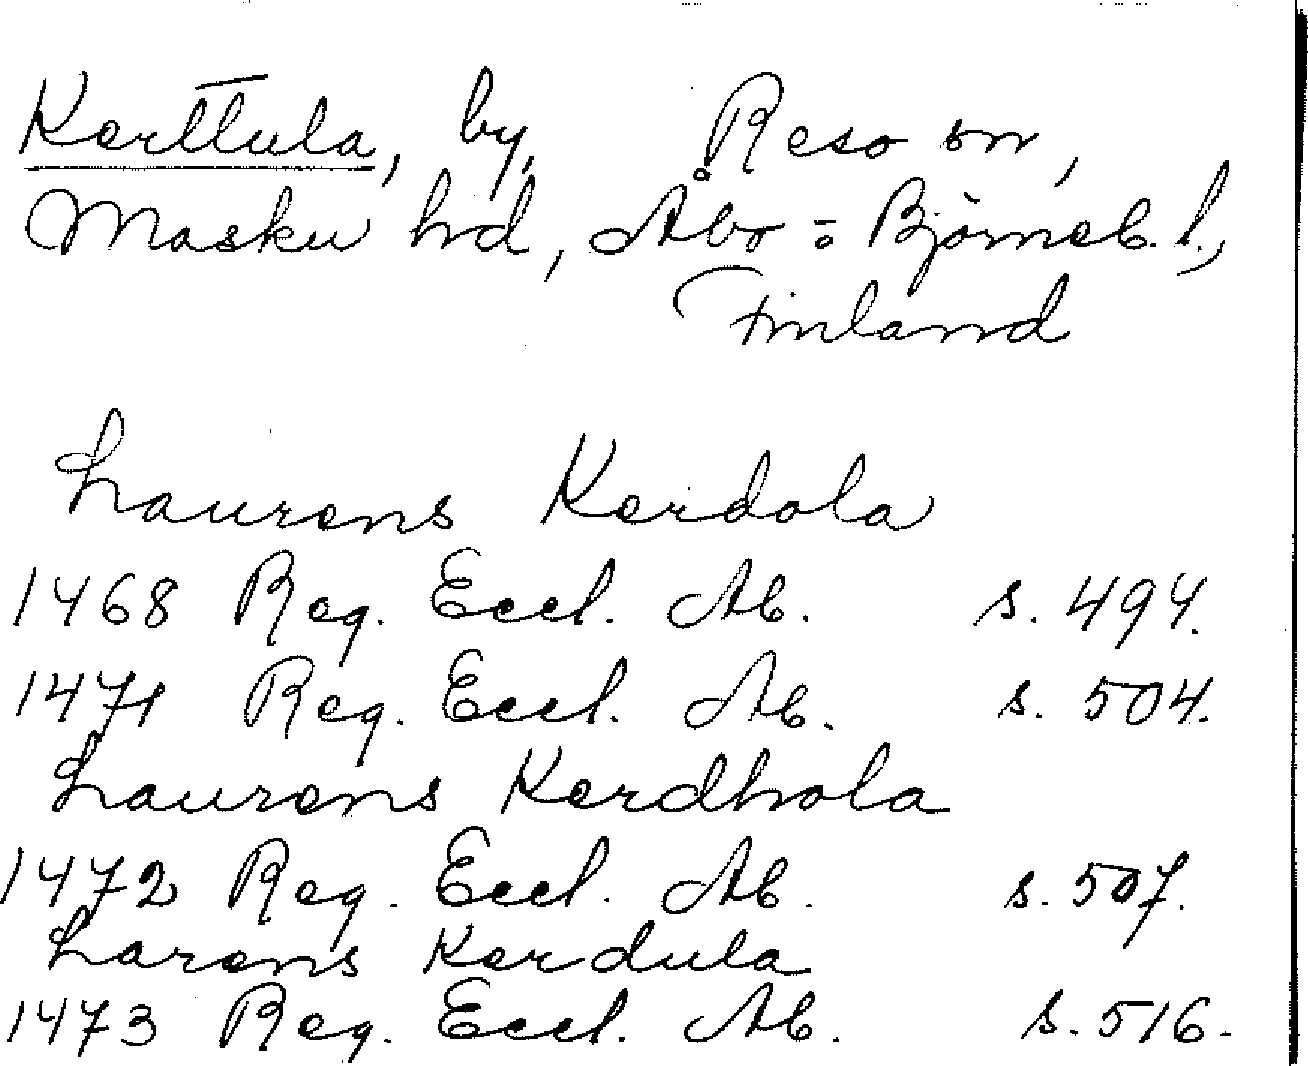 Kerttula, by, Reso sn,
Masku hd, Åbo-Björneb. l.,
Finland
Laurens Kerdola
1468 Reg. Eccl. Ab. s. 494.
1471 Reg. Eccl. Ab. s. 504.
Laurens Kerdhola
1472 Reg. Eccl. Ab. s. 507.
Larens Kerdula
1473 Reg. Eccl. Ab. s. 516.